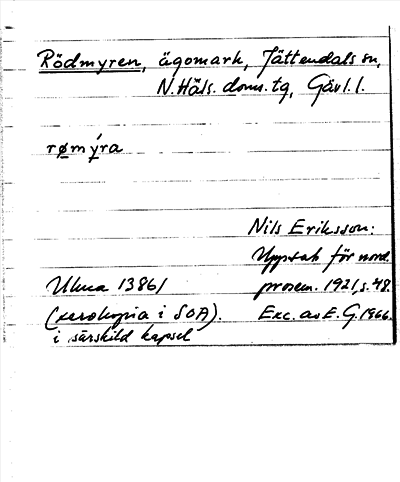 Rödmyren, ägomark, Jättendals sn,
N. Häls. doms. tg, Gävl. l.
rømýra
Nils Eriksson:
Uppsats för nord.
Uluca 13861 prosem. 1921, s. 48.
(xerokopia i SOA). Exc. av E. G. 1966.
i särskild kapsel